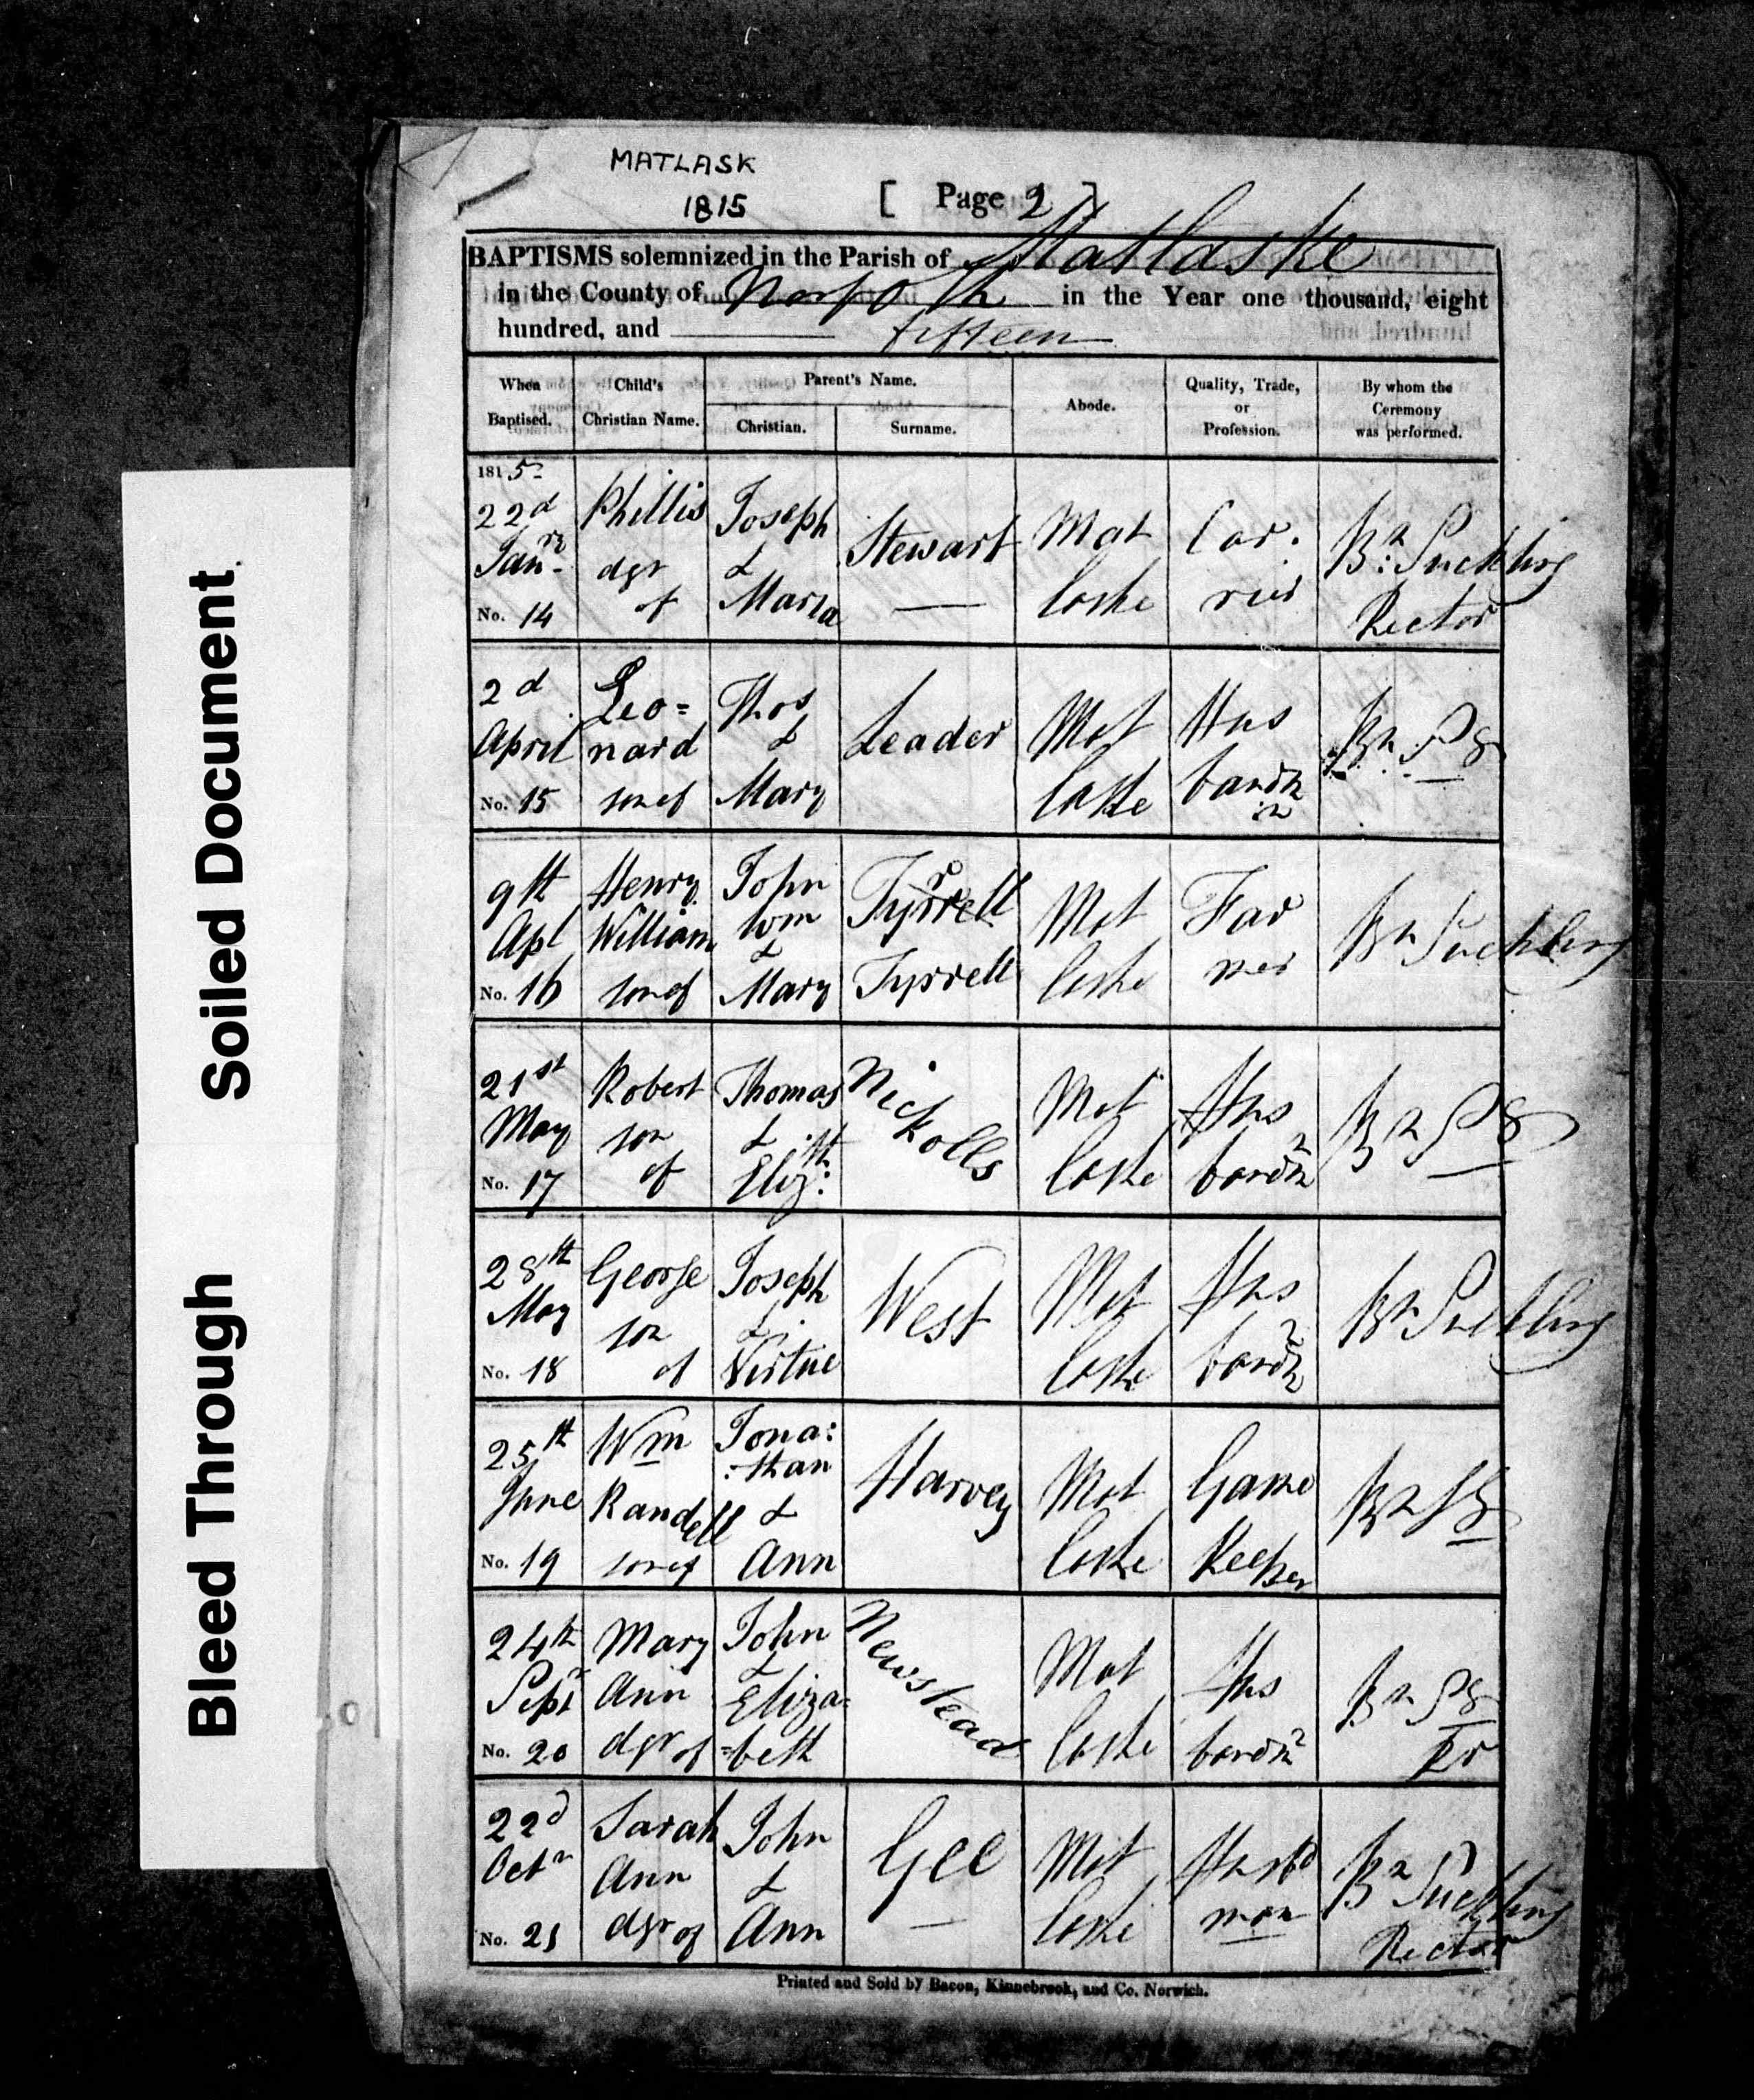 MATLASK
1815
[ Page 2 ]
BAPTISMS solemnized in the Parish of Matlaske
in the County of Norfolk in the Year one thousand, eight
hundred, and fifteen
When Baptised.
Child's Christian Name.
Parent's Name.
Christian.
Surname.
Abode.
Quality, Trade, or Profession.
By whom the Ceremony was performed.
1815
22d
Janry
No. 14
Phillis
dgr
of
Joseph
&
Maria
Stewart
Mat
laske
Car.
rier
Bn: Suckling
Rector
2d
April
No. 15
Leo=
nard
son of
Thos
&
Mary
Leader
Mat
laske
Hus
bandn
Bn. S.g
9th
Apl
No. 16
Henry
William
son of
John
Wm
&
Mary
Tyrrell
Tyrrell
Mat
laske
Far
mer
Bn Suckling
21st
May
No. 17
Robert
son
of
Thomas
&
Elizth:
Nickolls
Mat
laske
Hus
bandn
Bn Sg
28th
May
No. 18
George
son
of
Joseph
&
Virtue
West
Mat
laske
Hus
bandn
Bn Suckling
25th
June
No. 19
Wm
Randell
son of
Jona:
:than
&
Ann
Harvey
Mat
laske
Game
Keeper
Bn Sg
24th
Septr
No. 20
Mary
Ann
dgr of
John
&
Eliza=
=beth
Newstead
Mat
laske
Hus
bandn
Bn Sg
Rr
22d
Octr
No. 21
Sarah
Ann
dgr of
John
&
Ann
Gee
Mat
laske
Husbd
man
Bn Suckling
Rector
Printed and Sold by Bacon, Kinnebrook, and Co. Norwich.
Soiled Document
Bleed Through